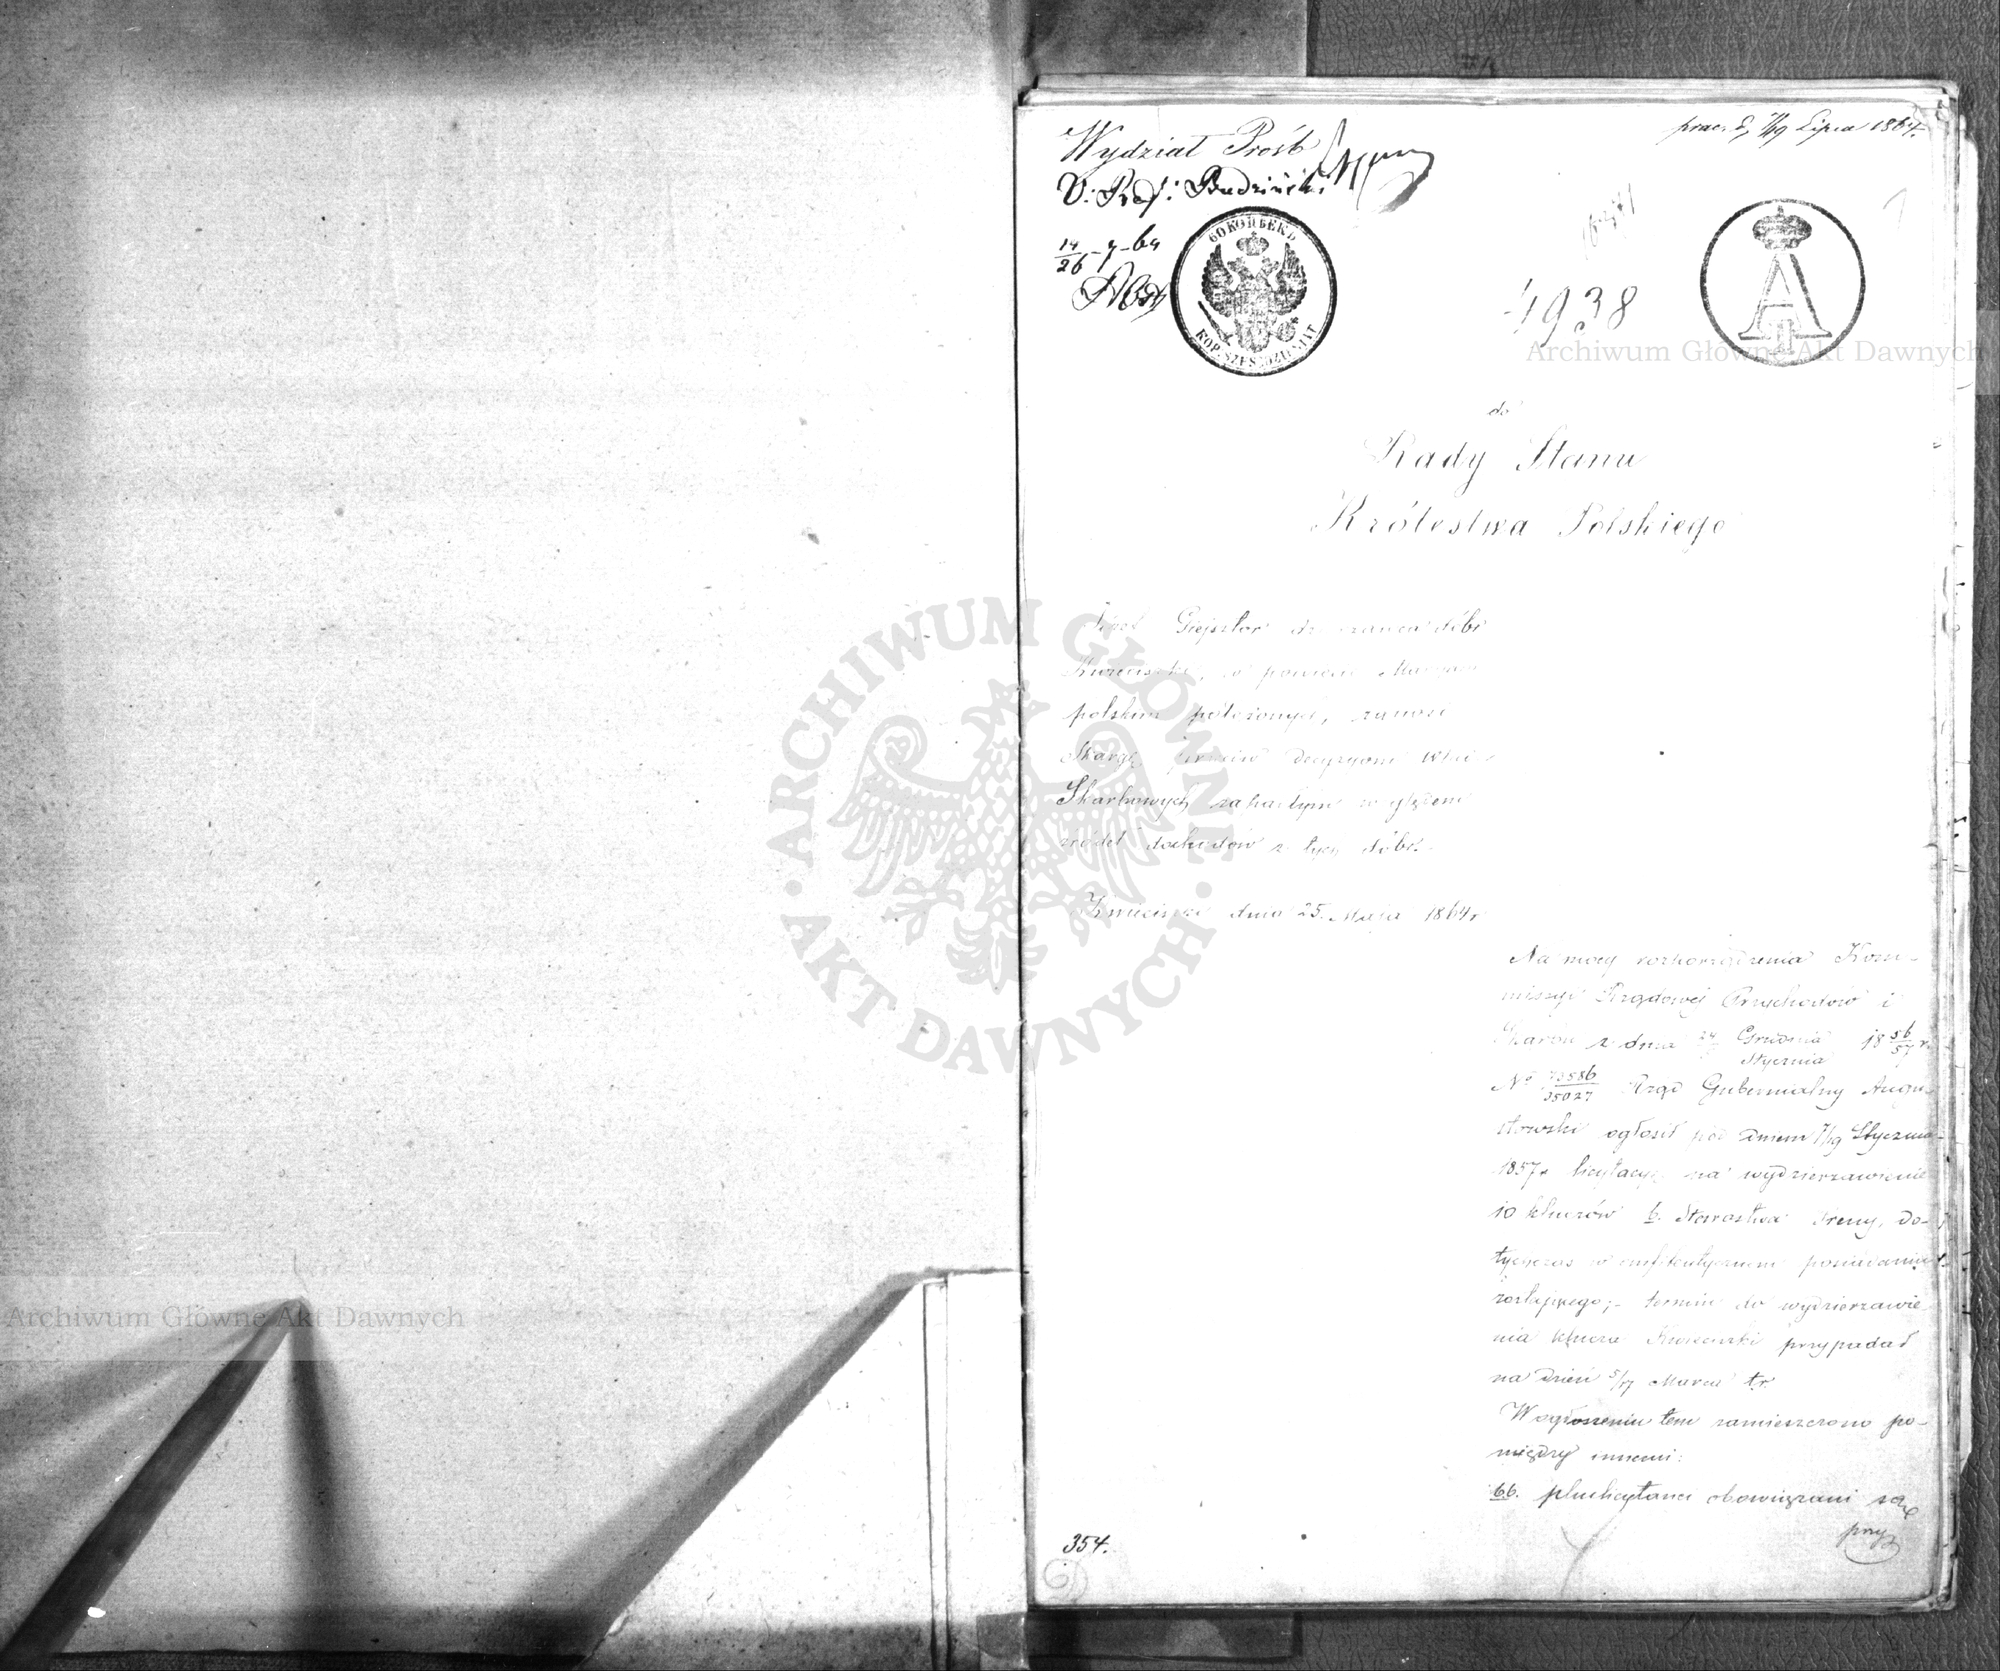 Wydział Próśb
V: Ref: Budziński
praes. d. 7/19 Lipca 1864.
14/26 - 7 - 64
60 КОПѢЕКЪ
KOP. SZEŚĆDZIESIĄT
4938
A II
do
Rady Stanu
Królestwa Polskiego
Giejsztor dzierżawca dóbr
Kwieciszki, w powiecie Maryam
polskim położonych, zanosi
Skargę przeciw decyzyom Władz
Skarbowych zapadłym względem
źródeł dochodów z tych dóbr.
Kwieciszki dnia 25. Maja 1864 r
Na mocy rozporządzenia Kom-
missyi Rządowej Przychodów i
Skarbu z dnia 24 Grudnia Stycznia 18 56/57 r.
No 73586/35027 Rząd Gubernialny Augu-
stowski ogłosił pod dniem 7/19 Stycznia
1857 r licytacyę na wydzierżawienie
10 kluczów b. Starostwa Preny, do-
tychczas w emfiteutycznem posiadaniu
zostającego; - termin do wydzierżawie
nia klucza przypadał
na dzień 5/17 Marca t.r.
W ogłoszeniu tem zamieszczono po-
między innemi:
66. pluslicytanci obowiązani są
przy
354.
Archiwum Główne Akt Dawnych
ARCHIWUM GŁÓWNE AKT DAWNYCH
Archiwum Główne Akt Dawnych